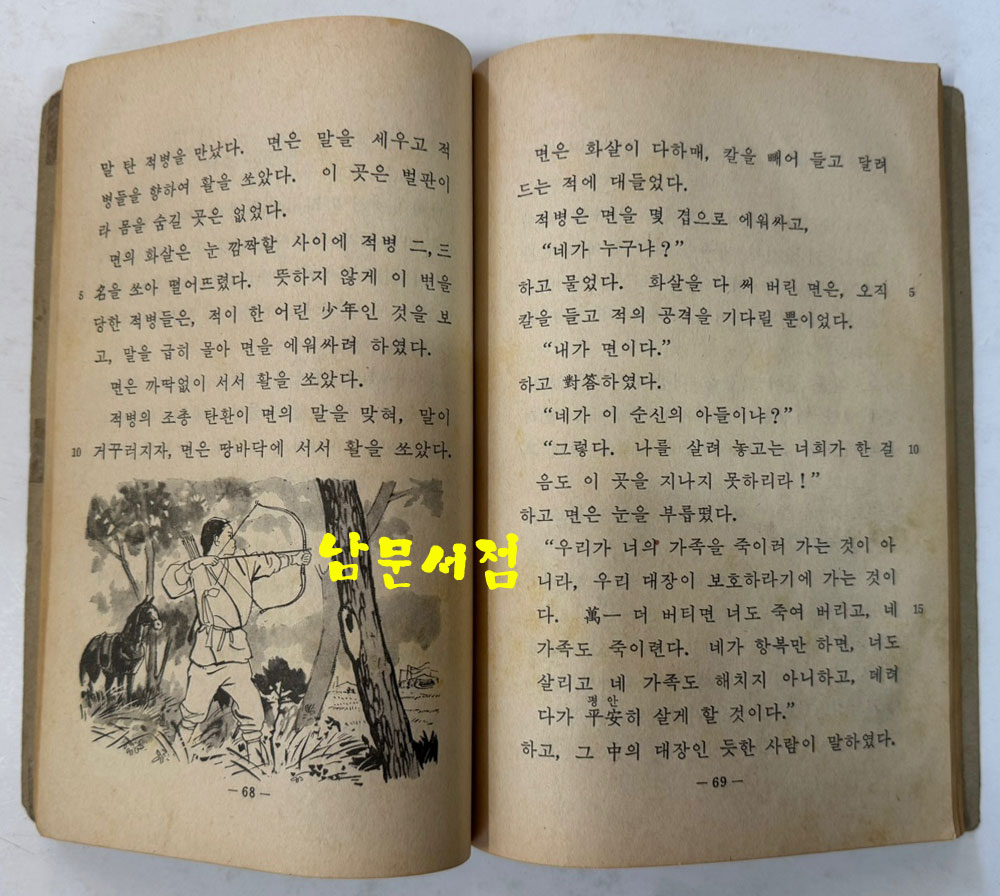 말 탄 적병을 만났다. 면은 말을 세우고 적
병들을 향하여 활을 쏘았다. 이 곳은 벌판이
라 몸을 숨길 곳은 없었다.
면의 화살은 눈 깜짝할 사이에 적병 二, 三
5 名을 쏘아 떨어뜨렸다. 뜻하지 않게 이 변을
당한 적병들은, 적이 한 어린 少年인 것을 보
고, 말을 급히 몰아 면을 에워싸려 하였다.
면은 까딱없이 서서 활을 쏘았다.
적병의 조총 탄환이 면의 말을 맞혀, 말이
10 거꾸러지자, 면은 땅바닥에 서서 활을 쏘았다.
남문서점
—68—
면은 화살이 다하매, 칼을 빼어 들고 달려
드는 적에 대들었다.
적병은 면을 몇 겹으로 에워싸고,
“네가 누구냐?”
하고 물었다. 화살을 다 써 버린 면은, 오직 5
칼을 들고 적의 공격을 기다릴 뿐이었다.
“내가 면이다.”
하고 對答하였다.
“네가 이 순신의 아들이냐?”
“그렇다. 나를 살려 놓고는 너희가 한 걸 10
음도 이 곳을 지나지 못하리라!”
하고 면은 눈을 부릅떴다.
“우리가 너의 가족을 죽이러 가는 것이 아
니라, 우리 대장이 보호하라기에 가는 것이
다. 萬一 더 버티면 너도 죽여 버리고, 네 15
가족도 죽이련다. 네가 항복만 하면, 너도
살리고 네 가족도 해치지 아니하고, 데려
평안
다가 平安히 살게 할 것이다.”
하고, 그 中의 대장인 듯한 사람이 말하였다.
—69—